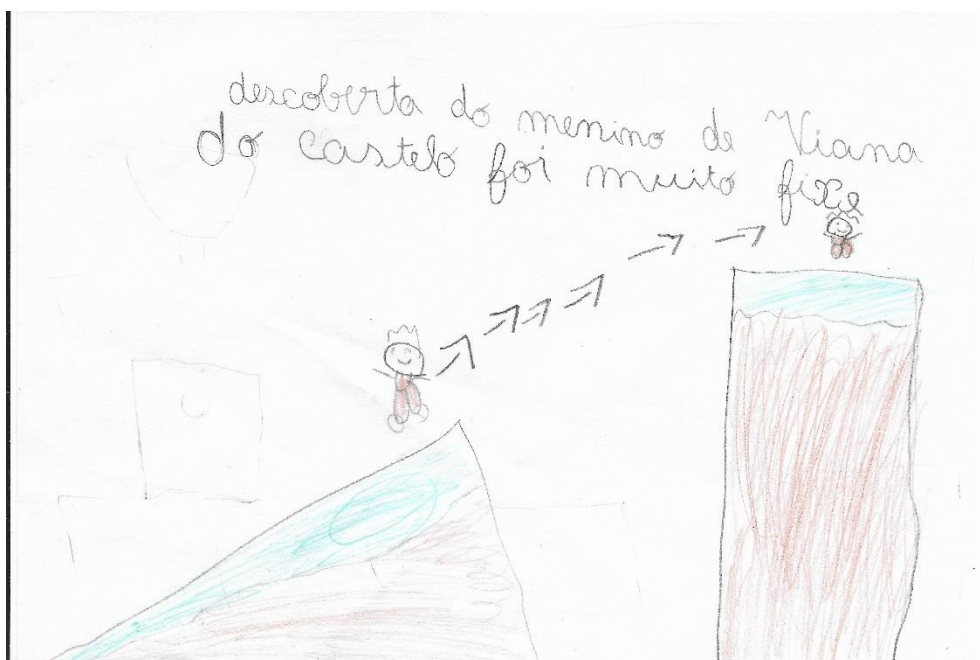 descoberta do menino de Viana
do castelo foi muito fixe